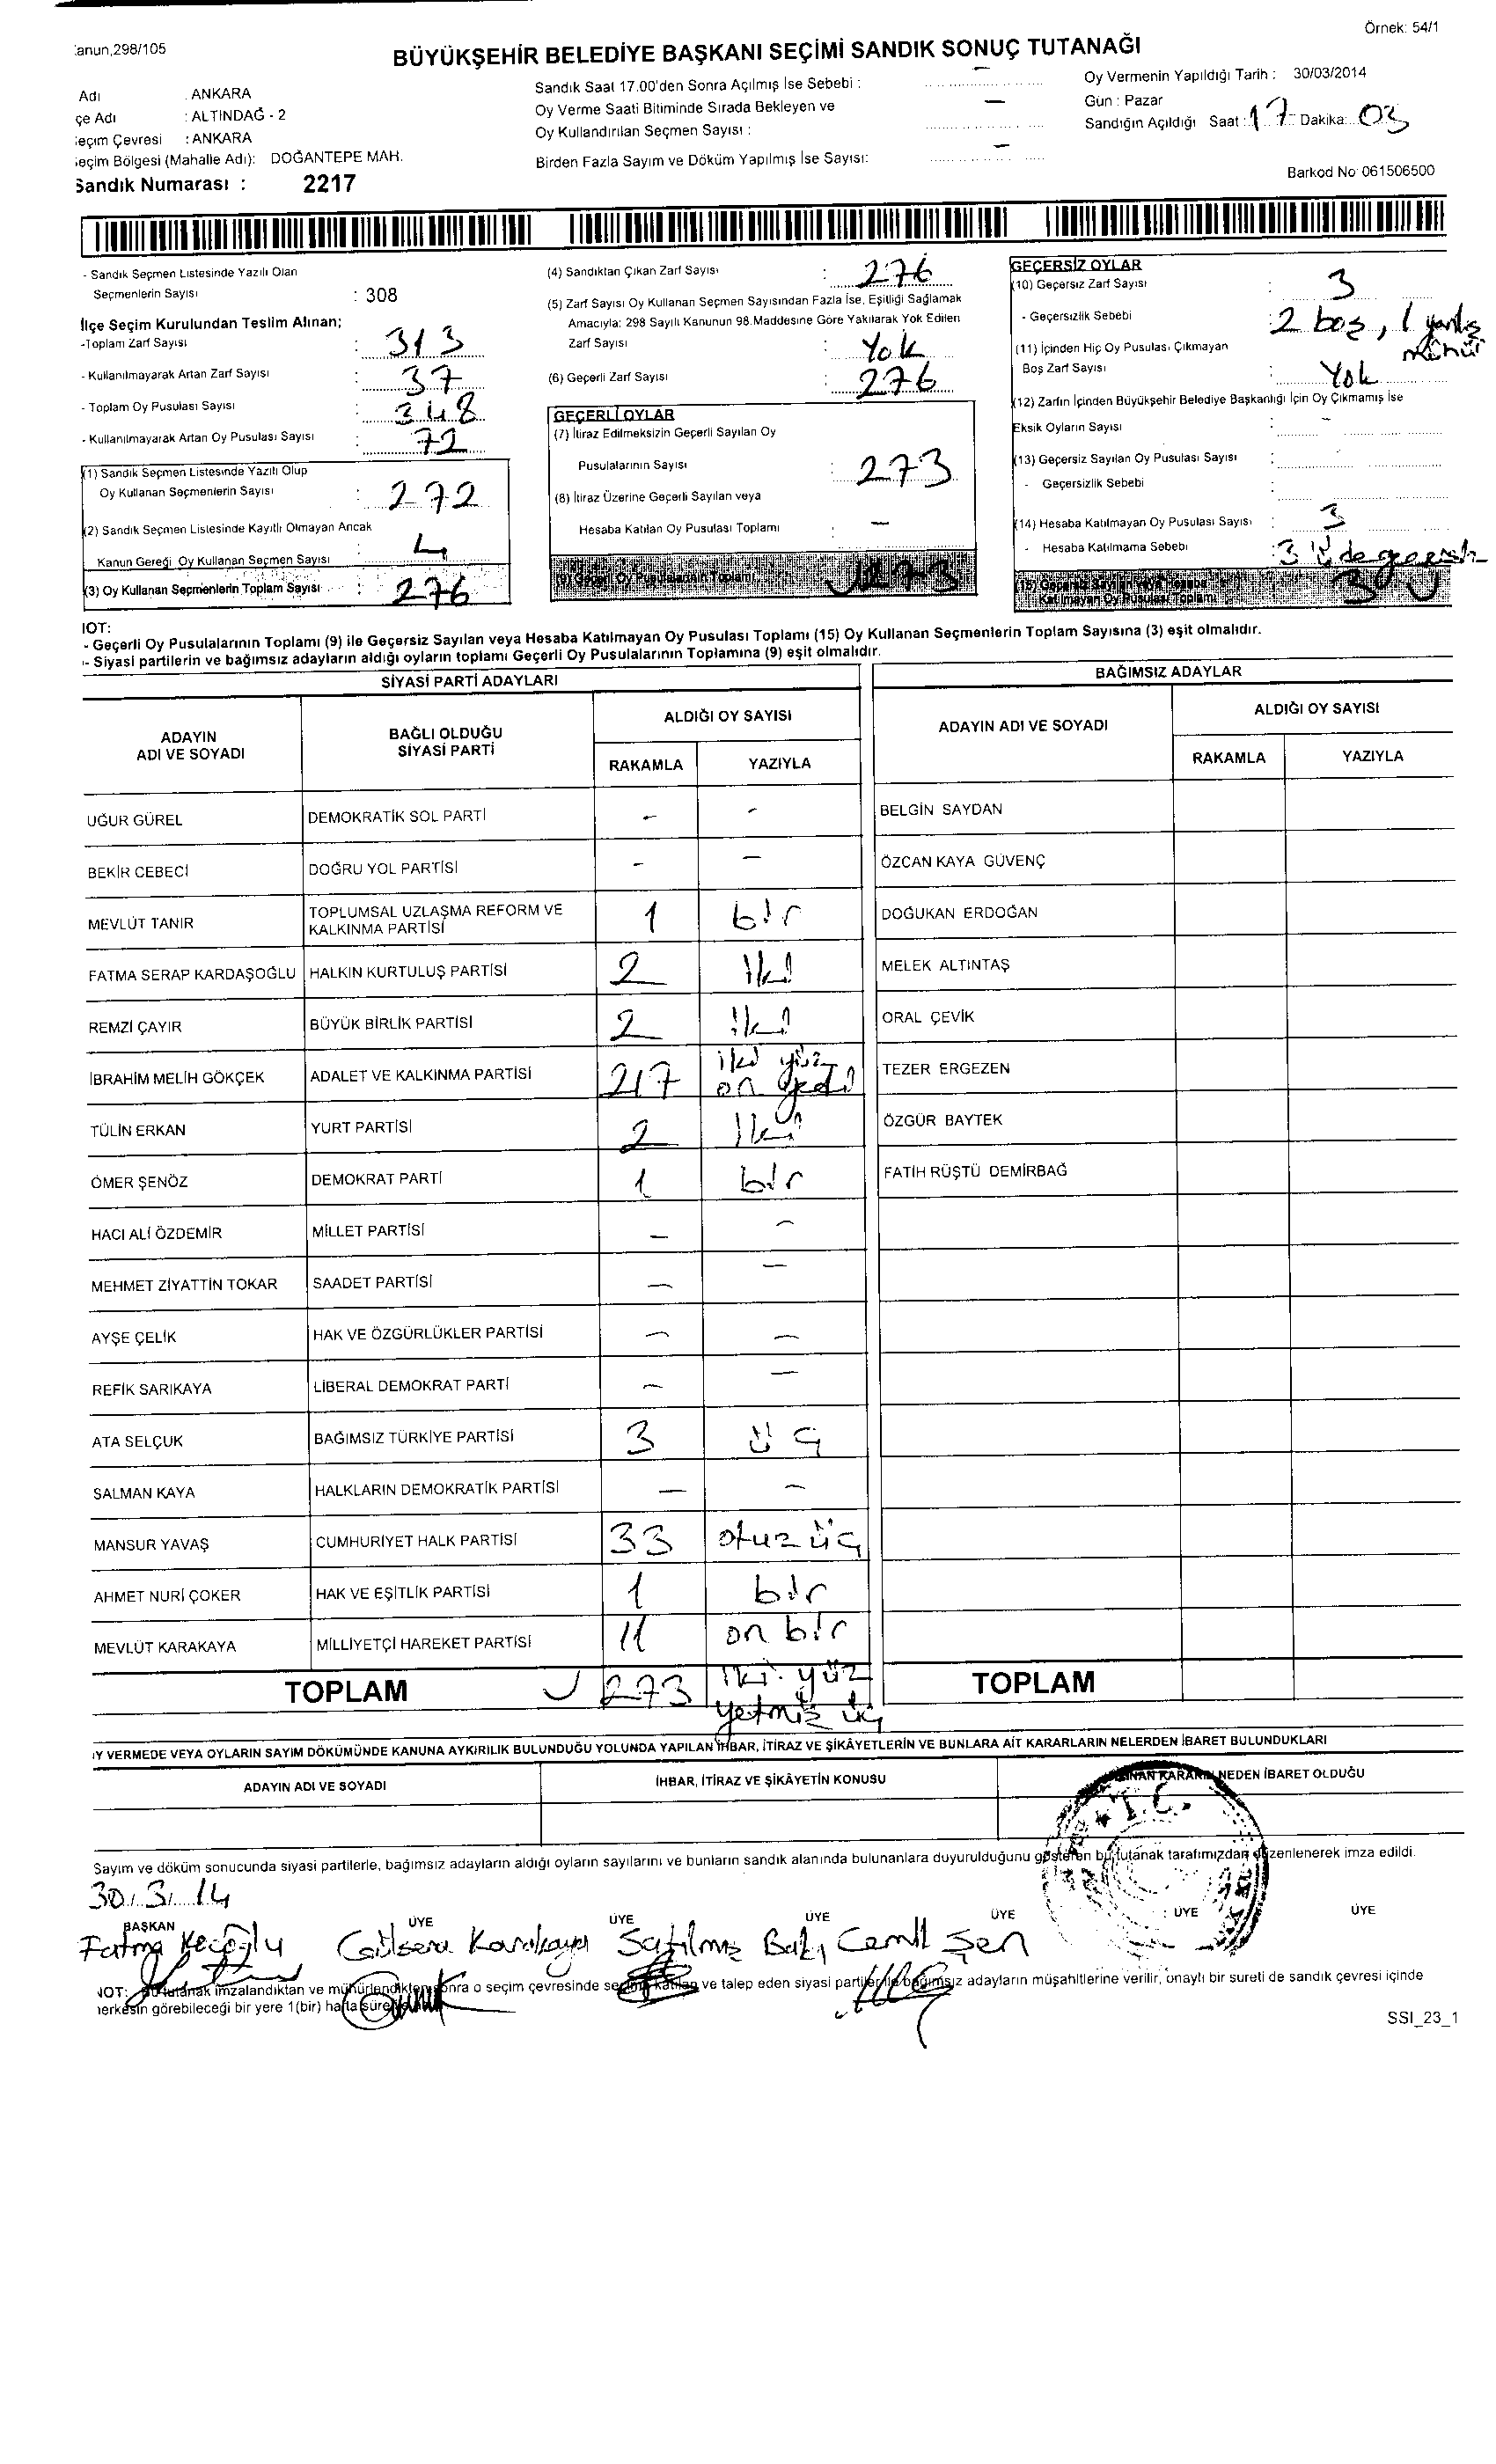 Örnek: 54/1
anun,298/105
BÜYÜKŞEHİR BELEDİYE BAŞKANI SEÇİMİ SANDIK SONUÇ TUTANAĞI
Adı : ANKARA
çe Adı : ALTINDAĞ - 2
eçim Çevresi : ANKARA
eçim Bölgesi (Mahalle Adı): DOĞANTEPE MAH.
Sandık Numarası : 2217
Sandık Saat 17.00'den Sonra Açılmış İse Sebebi : —
Oy Verme Saati Bitiminde Sırada Bekleyen ve
Oy Kullandırılan Seçmen Sayısı : —
Birden Fazla Sayım ve Döküm Yapılmış İse Sayısı: —
Oy Vermenin Yapıldığı Tarih : 30/03/2014
Gün : Pazar
Sandığın Açıldığı Saat : 17 Dakika: 03
Barkod No: 061506500
- Sandık Seçmen Listesinde Yazılı Olan
Seçmenlerin Sayısı : 308
İlçe Seçim Kurulundan Teslim Alınan;
-Toplam Zarf Sayısı : 313
- Kullanılmayarak Artan Zarf Sayısı : 37
- Toplam Oy Pusulası Sayısı : 348
- Kullanılmayarak Artan Oy Pusulası Sayısı : 72
(1) Sandık Seçmen Listesinde Yazılı Olup
Oy Kullanan Seçmenlerin Sayısı : 272
(2) Sandık Seçmen Listesinde Kayıtlı Olmayan Ancak
Kanun Gereği Oy Kullanan Seçmen Sayısı : 4
(3) Oy Kullanan Seçmenlerin Toplam Sayısı : 276
(4) Sandıktan Çıkan Zarf Sayısı : 276
(5) Zarf Sayısı Oy Kullanan Seçmen Sayısından Fazla İse, Eşitliği Sağlamak
Amacıyla: 298 Sayılı Kanunun 98.Maddesine Göre Yakılarak Yok Edilen
Zarf Sayısı : Yok
(6) Geçerli Zarf Sayısı : 276
GEÇERLİ OYLAR
(7) İtiraz Edilmeksizin Geçerli Sayılan Oy
Pusulalarının Sayısı : 273
(8) İtiraz Üzerine Geçerli Sayılan veya
Hesaba Katılan Oy Pusulası Toplamı : —
(9) Geçerli Oy Pusulalarının Toplamı 273
GEÇERSİZ OYLAR
(10) Geçersiz Zarf Sayısı : 3
- Geçersizlik Sebebi : 2 boş, 1 yanlış
mühür
(11) İçinden Hiç Oy Pusulası Çıkmayan
Boş Zarf Sayısı : Yok
(12) Zarfın İçinden Büyükşehir Belediye Başkanlığı İçin Oy Çıkmamış İse
Eksik Oyların Sayısı : —
(13) Geçersiz Sayılan Oy Pusulası Sayısı :
- Geçersizlik Sebebi :
(14) Hesaba Katılmayan Oy Pusulası Sayısı : 3
- Hesaba Katılmama Sebebi : 3 ü de geçersiz
(15) Geçersiz Sayılan veya Hesaba
Katılmayan Oy Pusulası Toplamı 3
NOT:
- Geçerli Oy Pusulalarının Toplamı (9) ile Geçersiz Sayılan veya Hesaba Katılmayan Oy Pusulası Toplamı (15) Oy Kullanan Seçmenlerin Toplam Sayısına (3) eşit olmalıdır.
- Siyasi partilerin ve bağımsız adayların aldığı oyların toplamı Geçerli Oy Pusulalarının Toplamına (9) eşit olmalıdır.
SİYASİ PARTİ ADAYLARI
ADAYIN ADI VE SOYADI BAĞLI OLDUĞU SİYASİ PARTİ ALDIĞI OY SAYISI
RAKAMLA YAZIYLA
UĞUR GÜREL DEMOKRATİK SOL PARTİ — —
BEKİR CEBECİ DOĞRU YOL PARTİSİ — —
MEVLÜT TANIR TOPLUMSAL UZLAŞMA REFORM VE KALKINMA PARTİSİ 1 bir
FATMA SERAP KARDAŞOĞLU HALKIN KURTULUŞ PARTİSİ 2 iki
REMZİ ÇAYIR BÜYÜK BİRLİK PARTİSİ 2 iki
İBRAHİM MELİH GÖKÇEK ADALET VE KALKINMA PARTİSİ 217 iki yüz on yedi
TÜLİN ERKAN YURT PARTİSİ 2 iki
ÖMER ŞENÖZ DEMOKRAT PARTİ 1 bir
HACI ALİ ÖZDEMİR MİLLET PARTİSİ — —
MEHMET ZİYATTİN TOKAR SAADET PARTİSİ — —
AYŞE ÇELİK HAK VE ÖZGÜRLÜKLER PARTİSİ — —
REFİK SARIKAYA LİBERAL DEMOKRAT PARTİ — —
ATA SELÇUK BAĞIMSIZ TÜRKİYE PARTİSİ 3 üç
SALMAN KAYA HALKLARIN DEMOKRATİK PARTİSİ — —
MANSUR YAVAŞ CUMHURİYET HALK PARTİSİ 33 otuz üç
AHMET NURİ ÇOKER HAK VE EŞİTLİK PARTİSİ 1 bir
MEVLÜT KARAKAYA MİLLİYETÇİ HAREKET PARTİSİ 11 on bir
TOPLAM 273 iki yüz yetmiş üç
BAĞIMSIZ ADAYLAR
ADAYIN ADI VE SOYADI ALDIĞI OY SAYISI
RAKAMLA YAZIYLA
BELGİN SAYDAN
ÖZCAN KAYA GÜVENÇ
DOĞUKAN ERDOĞAN
MELEK ALTINTAŞ
ORAL ÇEVİK
TEZER ERGEZEN
ÖZGÜR BAYTEK
FATİH RÜŞTÜ DEMİRBAĞ
TOPLAM
Y VERMEDE VEYA OYLARIN SAYIM DÖKÜMÜNDE KANUNA AYKIRILIK BULUNDUĞU YOLUNDA YAPILAN İHBAR, İTİRAZ VE ŞİKÂYETLERİN VE BUNLARA AİT KARARLARIN NELERDEN İBARET BULUNDUKLARI
ADAYIN ADI VE SOYADI İHBAR, İTİRAZ VE ŞİKÂYETİN KONUSU NEDEN İBARET OLDUĞU
T.C.
Sayım ve döküm sonucunda siyasi partilerle, bağımsız adayların aldığı oyların sayılarını ve bunların sandık alanında bulunanlara duyurulduğunu gösteren bu tutanak tarafımızdan düzenlenerek imza edildi.
30.3.14
BAŞKAN ÜYE ÜYE ÜYE ÜYE ÜYE ÜYE
Fatma Gülsera Karakaya Satılmış Cemil Şen
NOT: Bu tutanak imzalandıktan ve mühürlendikten sonra o seçim çevresinde seçime katılan ve talep eden siyasi partiler ile bağımsız adayların müşahitlerine verilir, onaylı bir sureti de sandık çevresi içinde
herkesin görebileceği bir yere 1(bir) hafta süre
SSI_23_1